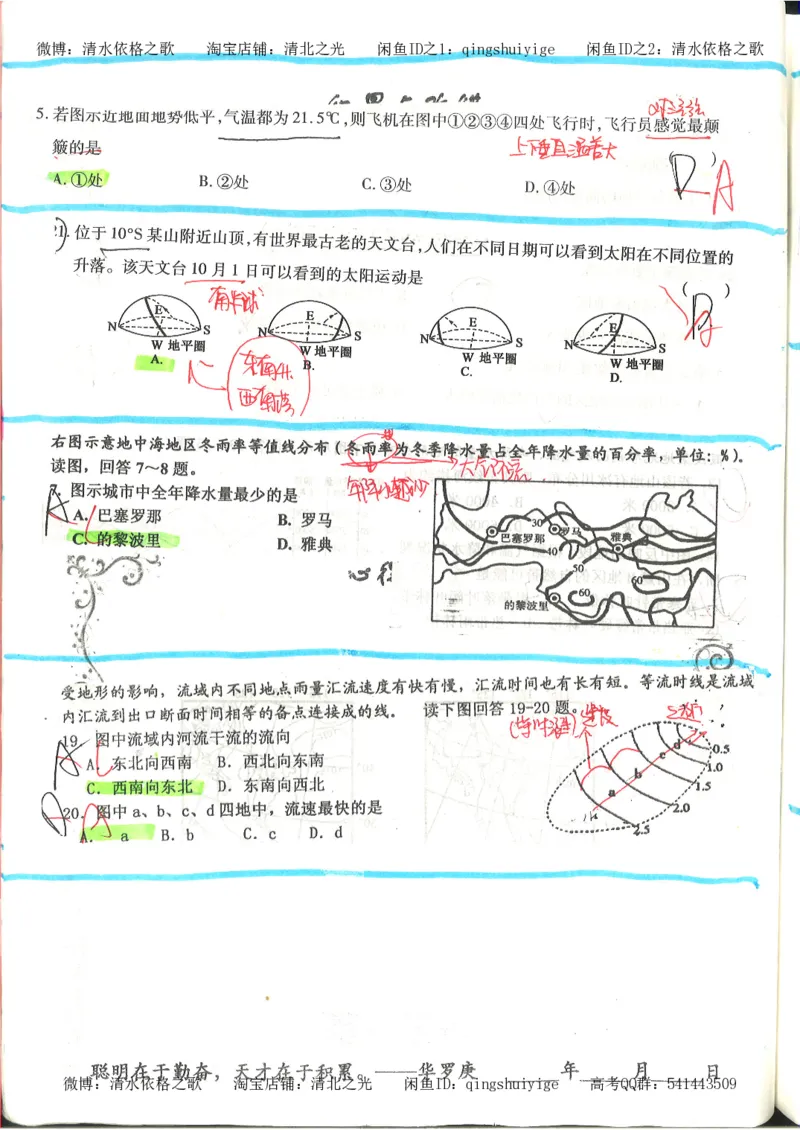 微博：清水依格之歌 淘宝店铺：清北之光 闲鱼ID之1：qingshuiyige 闲鱼ID之2：清水依格之歌
5. 若图示近地面地势低平，气温都为21.5℃，则飞机在图中①②③④四处飞行时，飞行员感觉最颠
簸的是 ( )
上下垂直温差大
A. ①处 B. ②处 C. ③处 D. ④处
A
1. 位于10°S某山附近山顶，有世界最古老的天文台，人们在不同日期可以看到太阳在不同位置的
升落。该天文台10月1日可以看到的太阳运动是 ( )
南半球
N E S W 地平圈 A.
N E S W 地平圈 B.
N E S W 地平圈 C.
N E S W 地平圈 D.
东南升
西南落
右图示意地中海地区冬雨率等值线分布（冬雨率为冬季降水量占全年降水量的百分率，单位：%）。
读图，回答7～8题。
7. 图示城市中全年降水量最少的是
A. 巴塞罗那 B. 罗马
C. 的黎波里 D. 雅典
30 巴塞罗那 罗马 雅典
40
50
60 60
的黎波里
受地形的影响，流域内不同地点雨量汇流速度有快有慢，汇流时间也有长有短。等流时线是流域
内汇流到出口断面时间相等的各点连接成的线。 读下图回答19-20题。
19. 图中流域内河流干流的流向
A. 东北向西南 B. 西北向东南
C. 西南向东北 D. 东南向西北
20. 图中a、b、c、d四地中，流速最快的是
A. a B. b C. c D. d
a b c d
0.5
1.0
1.5
2.0
2.5
聪明在于勤奋，天才在于积累。——华罗庚 年 月 日
微博：清水依格之歌 淘宝店铺：清北之光 闲鱼ID：qingshuiyige 高考QQ群：541443509